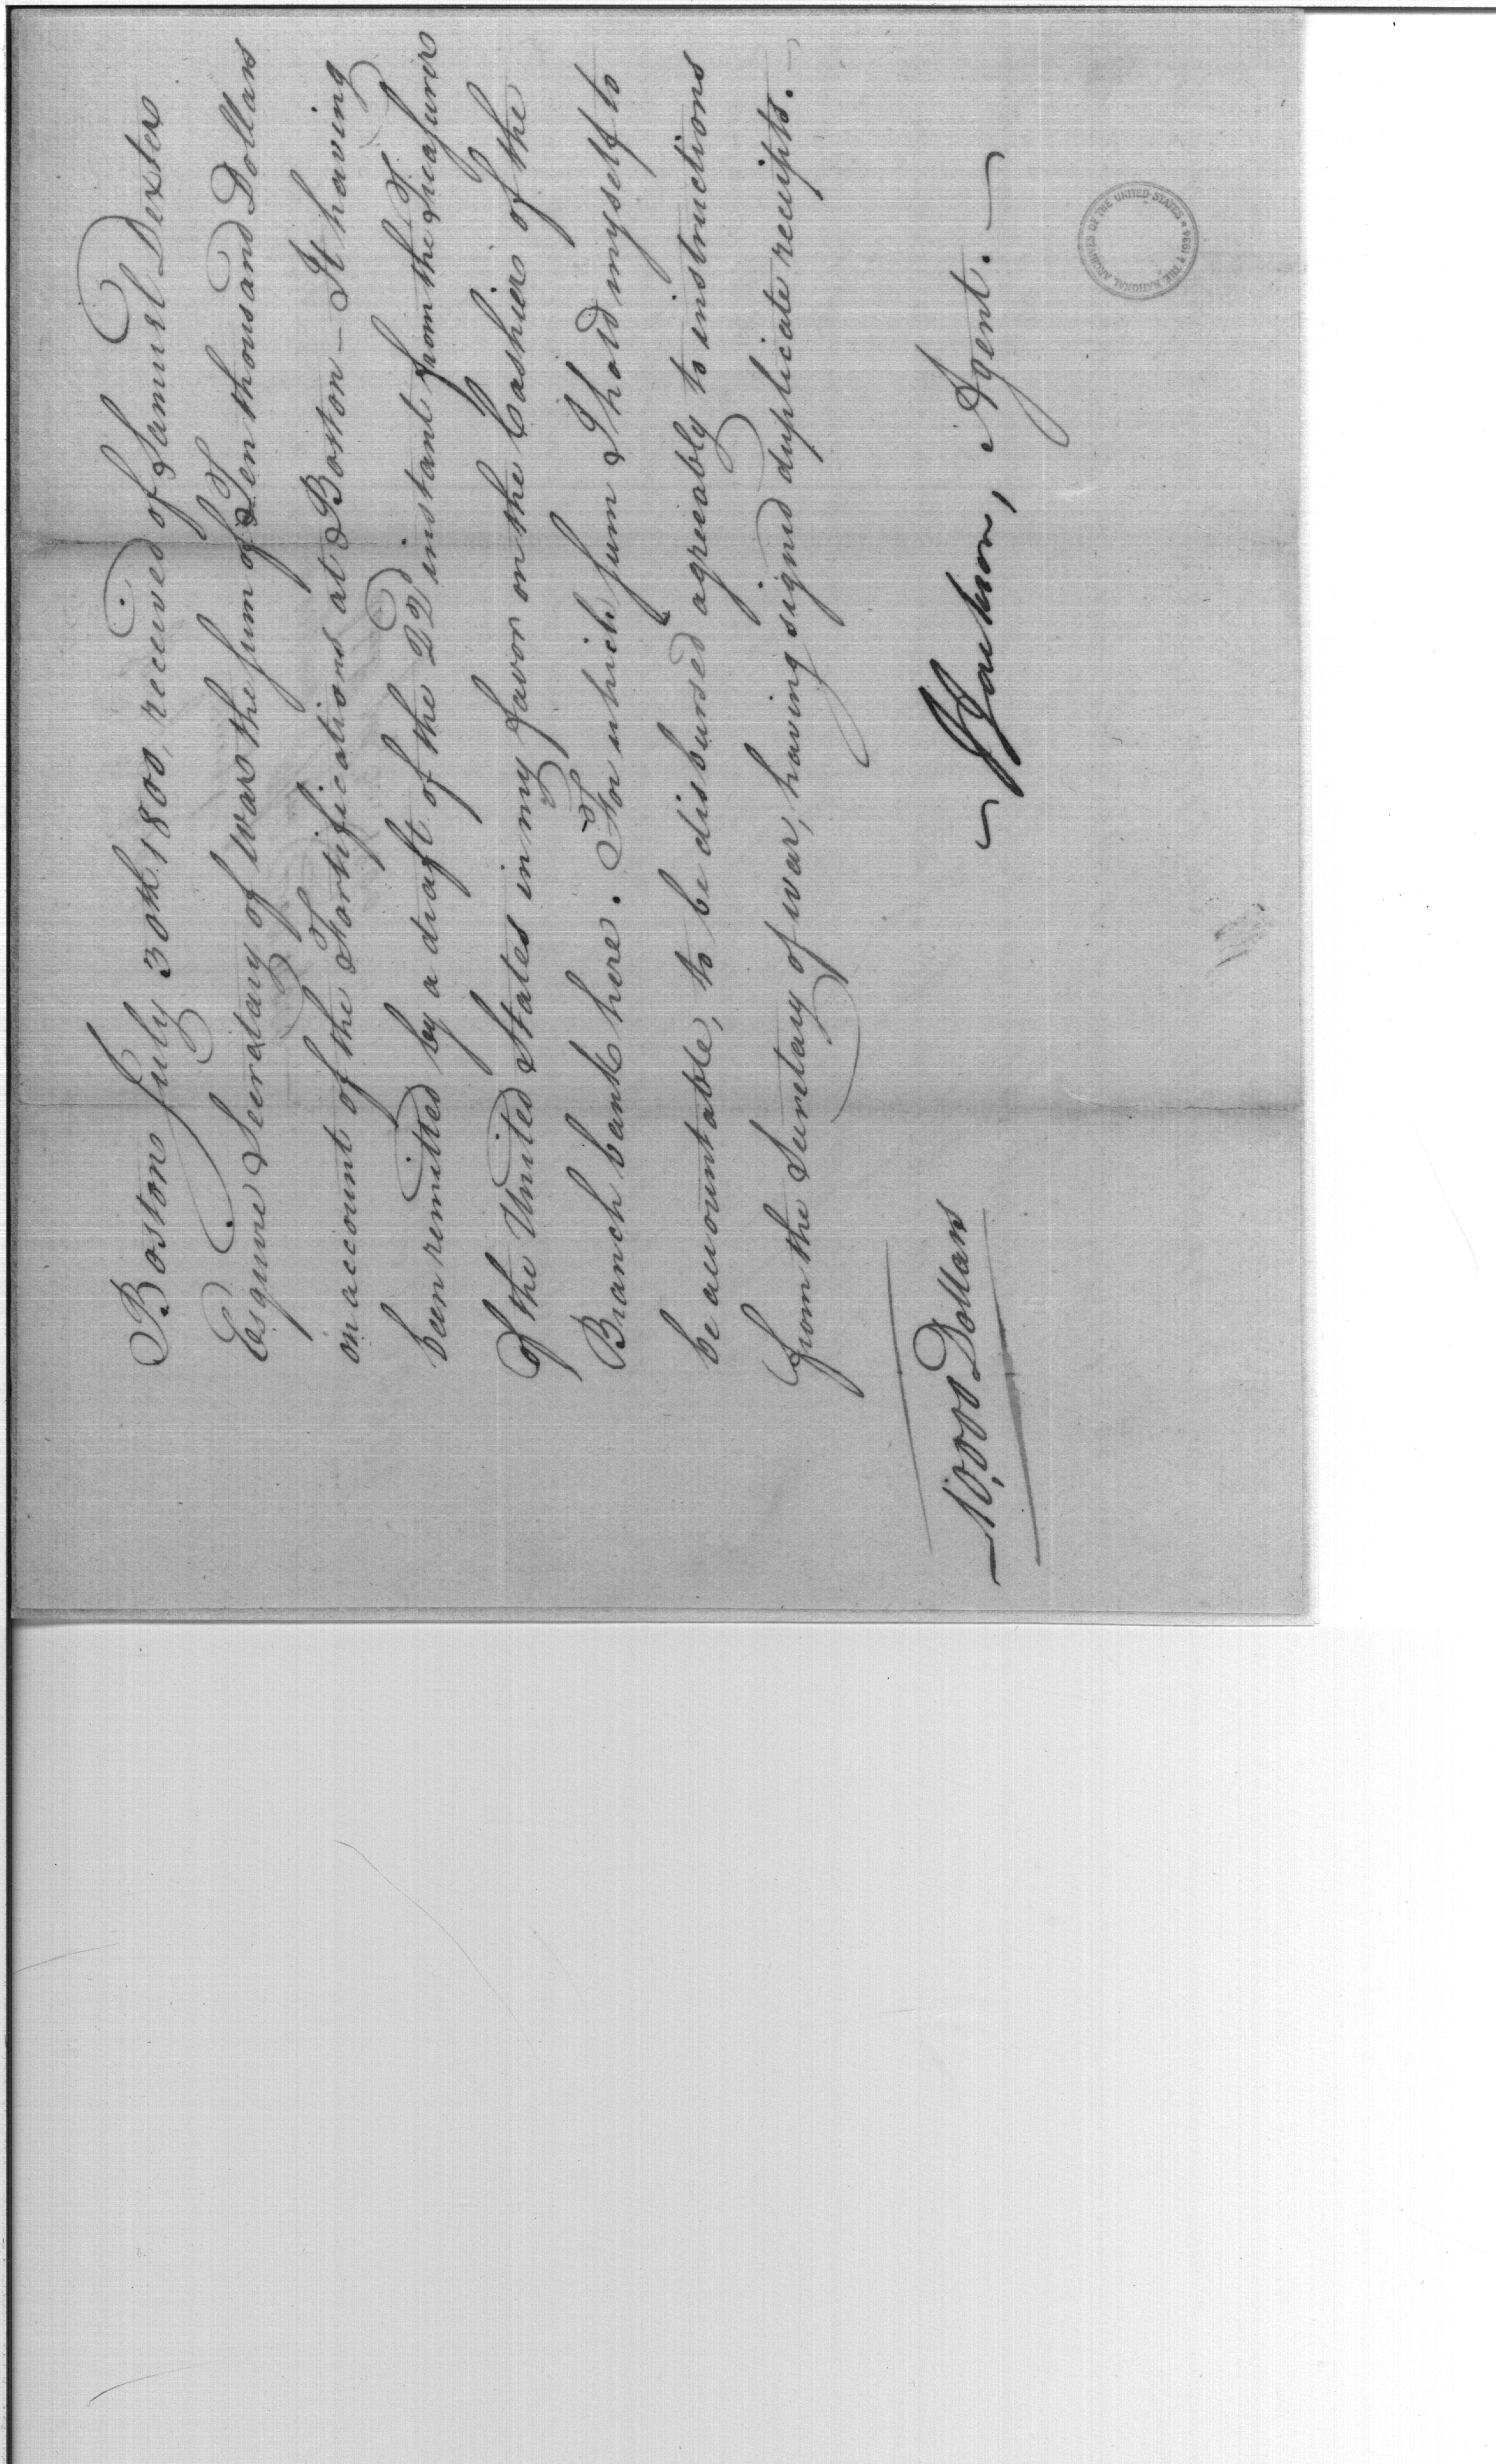 Boston July 30th 1800, received of Samuel Dexter
Esquire Secretary of war the sum of Ten thousand Dollars
on account of the Fortifications at Boston — It having
been remitted by a draft of the 22d instant from the Treasurer
of the United States in my favor on the Cashier of the
Branch bank here. For which sum I hold myself to
be accountable, to be disbursed agreeably to instructions
from the Secretary of war, having signed duplicate receipts. —
Jackson, Agent. —
— 10,000 Dollars
THE NATIONAL ARCHIVES OF THE UNITED STATES * 1934 *